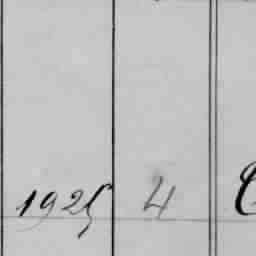 1925 4